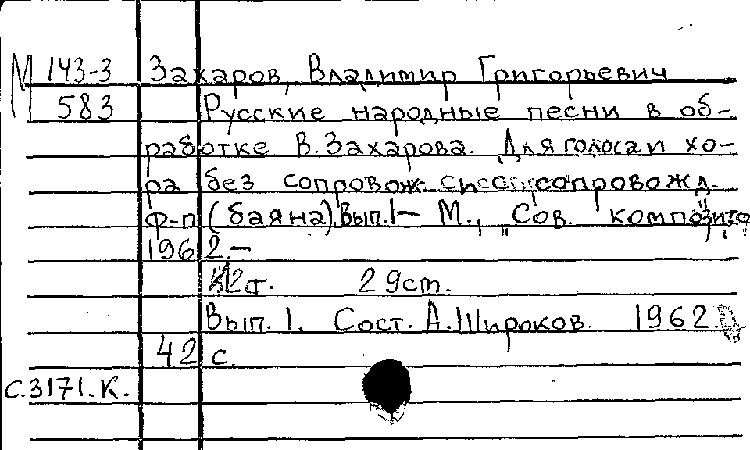 М 143-3 Захаров, Владимир Григорьевич
583 Русские народные песни в об-
работке В. Захарова. Для голоса и хо-
ра без сопровож. и с сопровожд.
ф-п (баяна). Вып. 1 - М., "Сов. композитор",
1962.-
2 т. 29 см.
Вып. 1. Сост. А. Широков. 1962.
42 с.
с.3171.К.